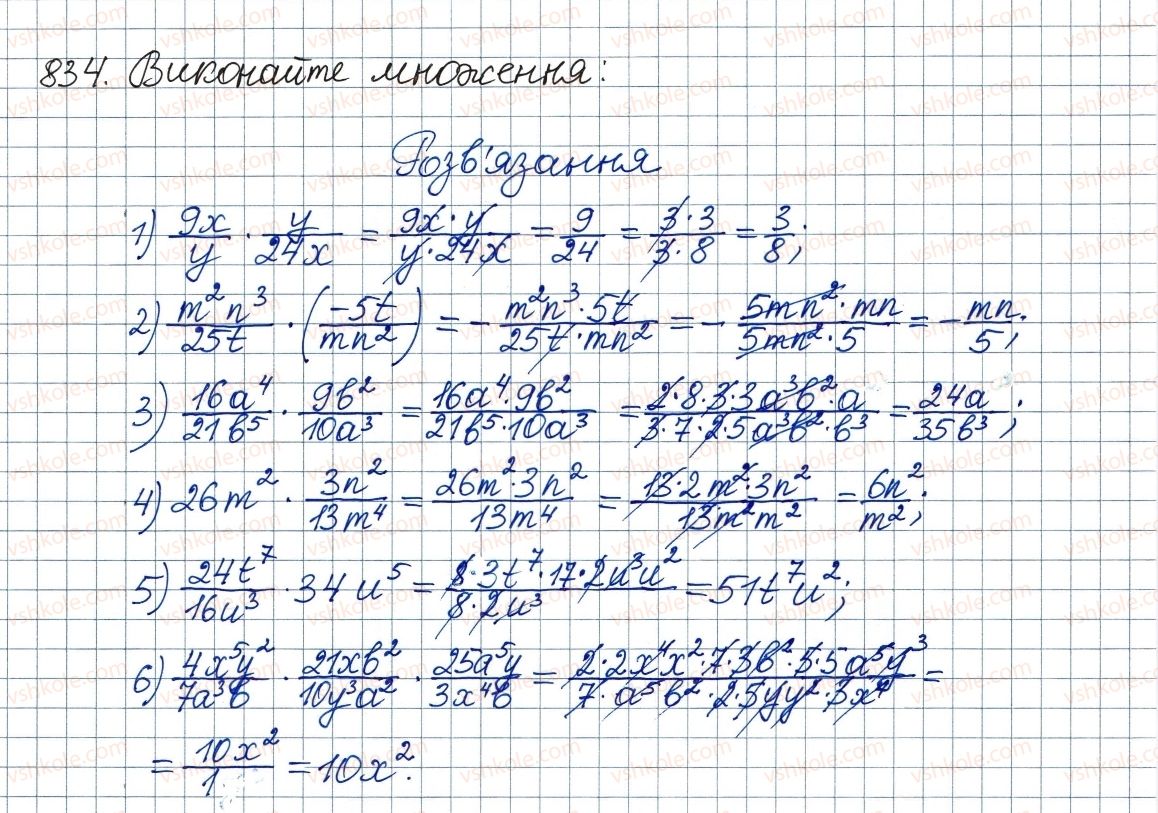 834. Виконайте множення:
Розв'язання
1) 9x/y · y/24x = 9x·y/y·24x = 9/24 = 3·3/3·8 = 3/8;
2) m²n³/25t · (-5t/mn²) = - m²n³·5t/25t·mn² = - 5mn²·mn/5mn²·5 = - mn/5;
3) 16a⁴/21b⁵ · 9b²/10a³ = 16a⁴·9b²/21b⁵·10a³ = 2·8·3·3a³b²·a/3·7·2·5a³b²·b³ = 24a/35b³;
4) 26m² · 3n²/13m⁴ = 26m²·3n²/13m⁴ = 13·2m²·3n²/13m²m² = 6n²/m²;
5) 24t⁷/16u³ · 34u⁵ = 8·3t⁷·17·2u³u²/8·2u³ = 51t⁷u²;
6) 4x⁵y²/7a³b · 21xb²/10y³a² · 25a⁵y/3x⁴b = 2·2x⁴x²·7·3b²·5·5a⁵y³/7·a⁵b²·2·5yy²·3x⁴ =
= 10x²/1 = 10x².
vshkole.com